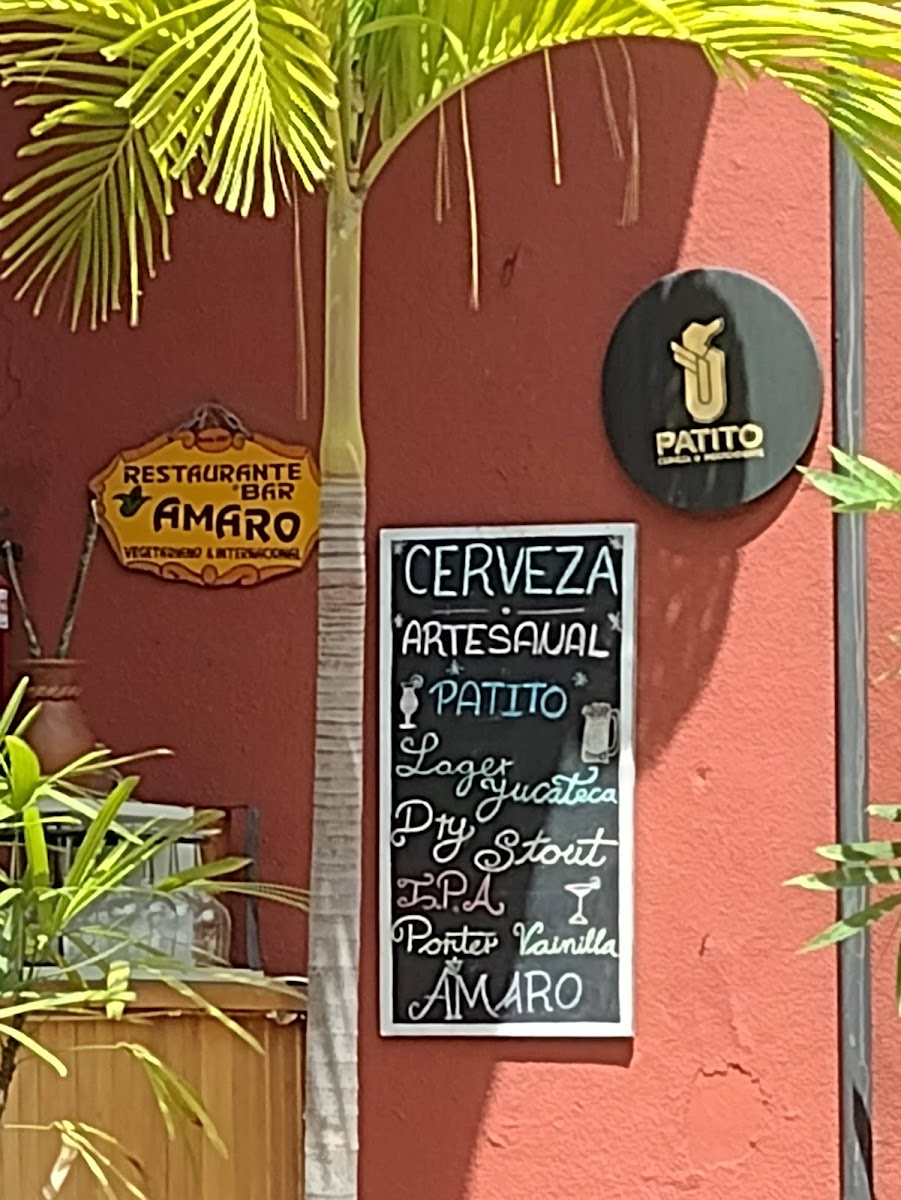 RESTAURANTE
BAR
AMARO
VEGETARIANO & INTERNACIONAL
PATITO
CERVEZA
ARTESANAL
PATITO
Lager
Yucateca
Dry
Stout
I.P.A
Porter Vainilla
AMARO